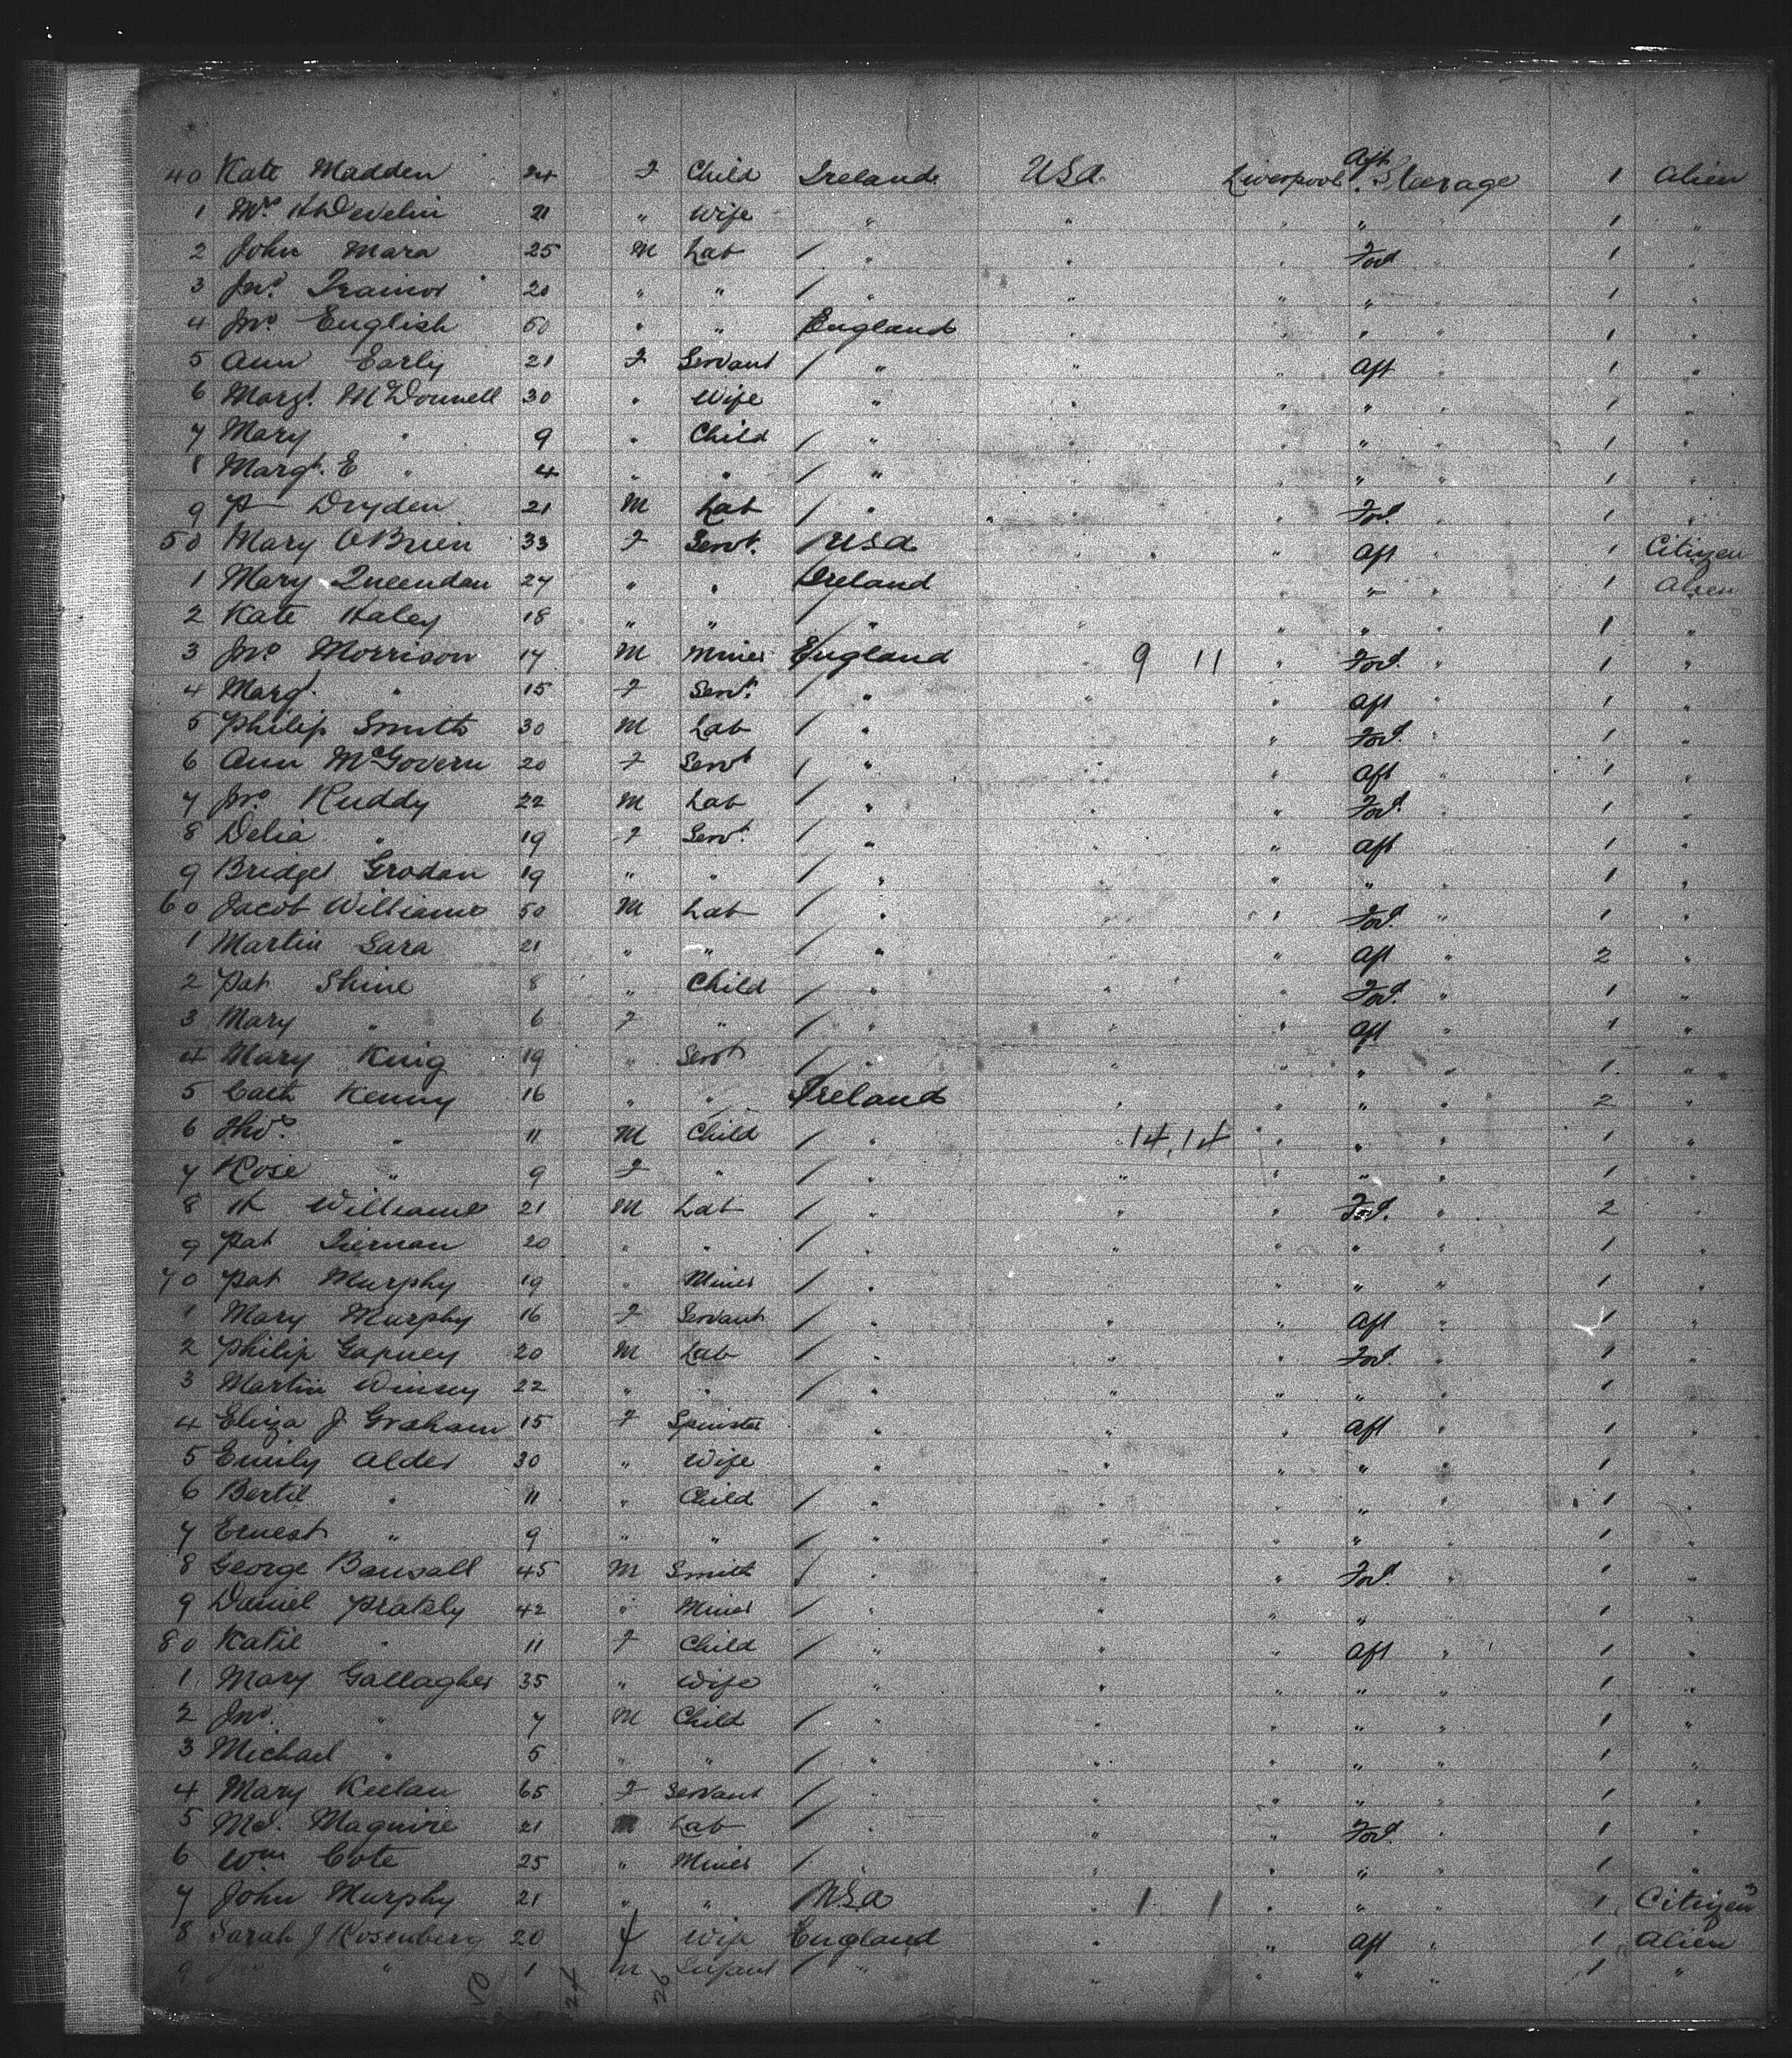 40 Kate Madden 24 F Child Ireland USA Liverpool Aft Steerage 1 Alien
1 Mrs Develin 21 " Wife " " " " 1 "
2 John Mara 25 M Lab / " " " Ford " 1 "
3 Jno. Trainor 20 " " / " " " " 1 "
4 Jno. English 50 " " England " " " " 1 "
5 Ann Early 21 F Servant / " " " Aft 1 "
6 Margt. McDonnell 30 " Wife " " " " " 1 "
7 Mary " 9 " Child / " " " " 1 "
8 Margt. E " 4 " " / " " " " 1
9 P Dryden 21 M Lab / " " " Ford. " 1 "
50 Mary OBrien 33 F Servt. / USA " " Aft " 1 Citizen
1 Mary 24 " " Ireland " " " 1 Alien
2 Kate Haley 18 " " / " " " " " 1 "
3 Jno. Morrison 17 M Miner England " 9 11 " Ford. " 1 "
4 Margt. " 15 F Servt. / " " " Aft 1 "
5 Philip Smith 30 M Lab / " " Ford. " 1 "
6 Ann McGovern 20 F Servt / " " Aft " 1 "
7 Jno. Ruddy 22 M Lab / " " " Ford. " 1 "
8 Delia " 19 F Servt. / " " " Aft " 1 "
9 Bridget Grodan 19 " " / " " " " 1 "
60 Jacob Williams 50 M Lab / " " Ford. " 1 "
1 Martin Sara 21 " " / " " Aft " 2 "
2 Pat Shine 8 " Child / " " " Ford. " 1 "
3 Mary " 6 F " / " " " Aft " 1 "
4 Mary King 19 " Servt / " " " " " 1 "
5 Cath Kenny 16 " " Ireland " " " " 2 "
6 " 11 M Child / " 14,14 " " " 1 "
7 Rose " 9 F " / " " " " " 1 "
8 Williams 21 M Lab / " " " Ford. " 2 "
9 Pat Tiernan 20 " " / " " " " 1 "
70 Pat Murphy 19 " Miner / " " " " 1 "
1 Mary Murphy 16 F Servant / " " " Aft " 1 "
2 Philip Gapney 20 M Lab / " " Ford. " 1 "
3 Martin 22 " " / " " " " 1 "
4 Eliza J Graham 15 F Spinster " " " Aft " 1 "
5 Emily Alder 30 " Wife " " " " " 1 "
6 Bertil " 11 " Child / " " " " " 1 "
7 Ernest " 9 " " / " " " " 1 "
8 George Bansall 45 M Smith / " " " Ford. " 1 "
9 Daniel 42 " Miner / " " " " 1 "
80 Katie " 11 F Child / " " " Aft " 1 "
1 Mary Gallagher 35 " Wife " " " " " 1 "
2 Jno. " 7 M Child / " " " " " 1 "
3 Michael " 5 " " / " " " " " 1 "
4 Mary Keelan 65 F Servant / " " " " " 1 "
5 Md. Maguire 21 M Lab / " " " Ford. " 1 "
6 Wm Cote 25 " Miner / " " " " 1 "
7 John Murphy 21 " " / USA " 1 1 " " 1 Citizen
8 Sarah J Rosenberg 20 F Wife England " " Aft " 1 Alien
9 " 1 M Infant / " " " " " 1 "
24 26